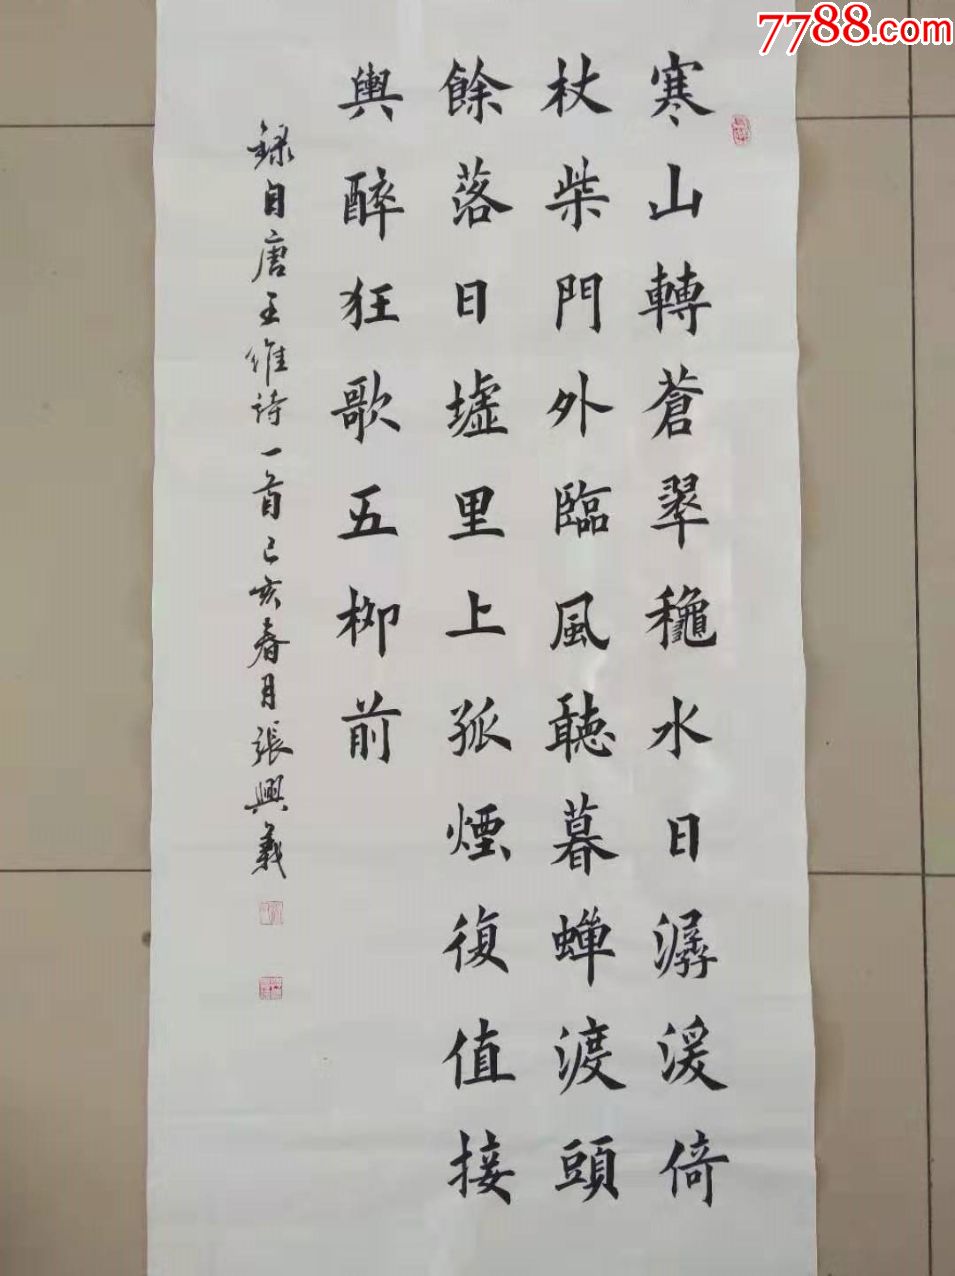 7788.com
寒山轉蒼翠穐水日潺湲倚
杖柴門外臨風聽暮蟬渡頭
餘落日墟里上孤煙復值接
輿醉狂歌五柳前
録自唐王維诗一首己亥春月張興義